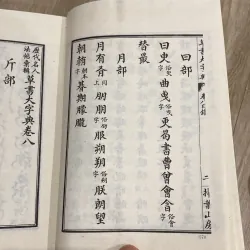 草書大字典
二 掃葉山房
曰部
曰曲曳更曷書曹曾會
替最
月部
月有朋服朔朕朗望
朝朞期朦朧
歷代名人
草書大字典卷八
斤部